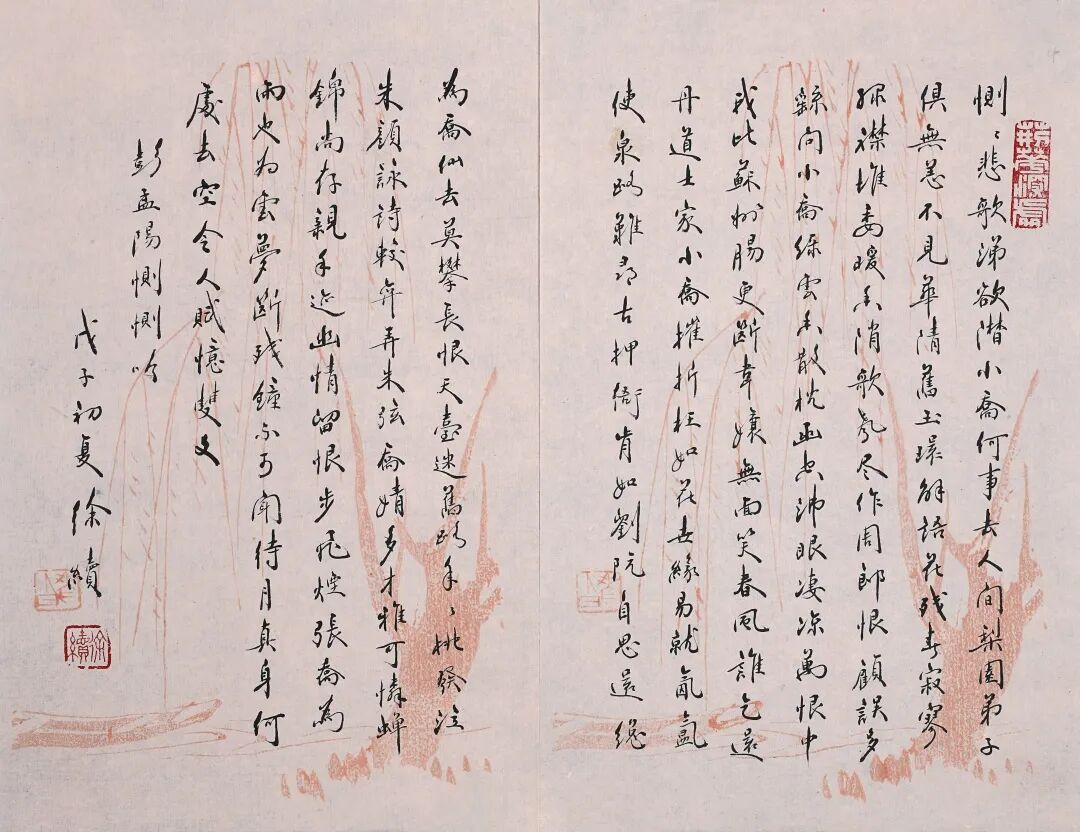 惻〻悲歌涕欲潸小喬何事去人間梨園弟子
俱無恙不見華清舊玉環解語花殘春寂寥
襟堆委暖香消歌尽作周郎恨顧誤多
繇向小喬綠雲香散枕函空沛眼凄涼萬恨中
我比蘇州腸更斷韋孃無面笑春風誰乞還
丹道士家小喬摧折枉如花世緣易就氤氳
使泉路難尋古押衙肯如劉阮自思還總
為喬仙去莫攀長恨天臺迷舊路年〻桃發泣
朱顏詠詩較弈弄朱弦喬婧多才雅可憐蟬
錦尚存親手迹幽情留恨步飛煙張喬為
雨也為雲夢斷殘鐘不可聞待月真身何
處去空令人賦憶雙文
彭孟陽惻惻吟
戊子初夏徐續
徐續